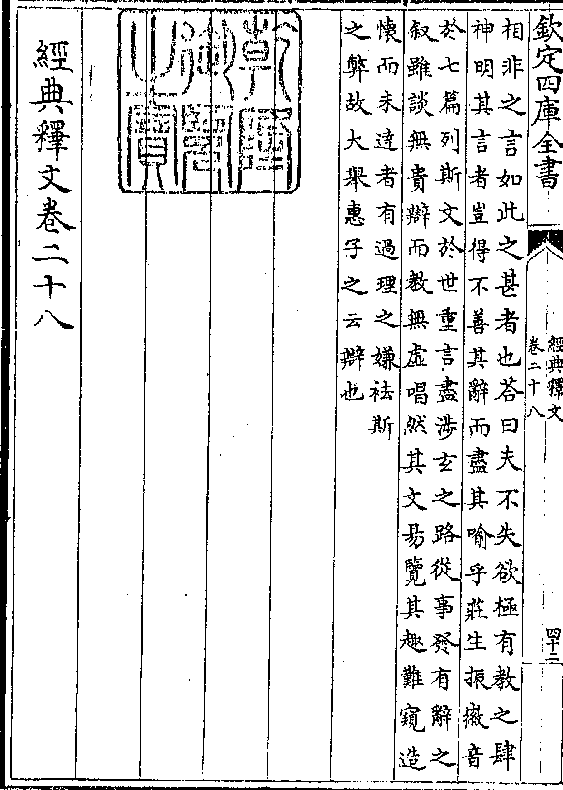 欽定四庫全書
經典釋文
卷二十八
四十二
相非之言如此之甚者也荅曰夫不失欲極有教之肆
神明其言者豈得不善其辭而盡其喻乎莊生振徽音
於七篇列斯文於世重言盡涉玄之路從事發有辭之
叙雖談無貴辯而教無虛唱然其文易覽其趣難窺造
懷而未達者有過理之嫌祛斯
之弊故大舉惠子之云辯也
乾隆御覽之寶
經典釋文卷二十八